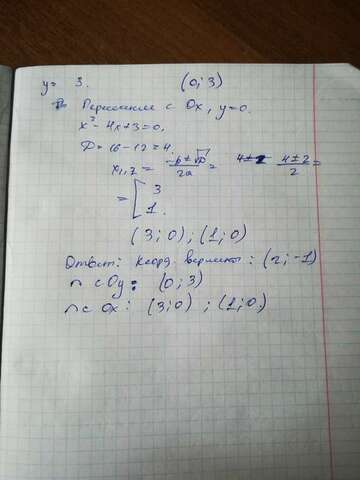 y = 3. (0; 3)
Пересечение с Ox, y=0.
x² - 4x + 3 = 0.
D = 16 - 12 = 4.
x₁,₂ = -b ± √D / 2a = 4 ± 2 / 2 =
= [ 3
1.
(3; 0); (1; 0)
Ответ: Коорд. вершины: (2; -1)
∩ с Oy: (0; 3)
∩ с Ox: (3; 0) ; (1; 0)